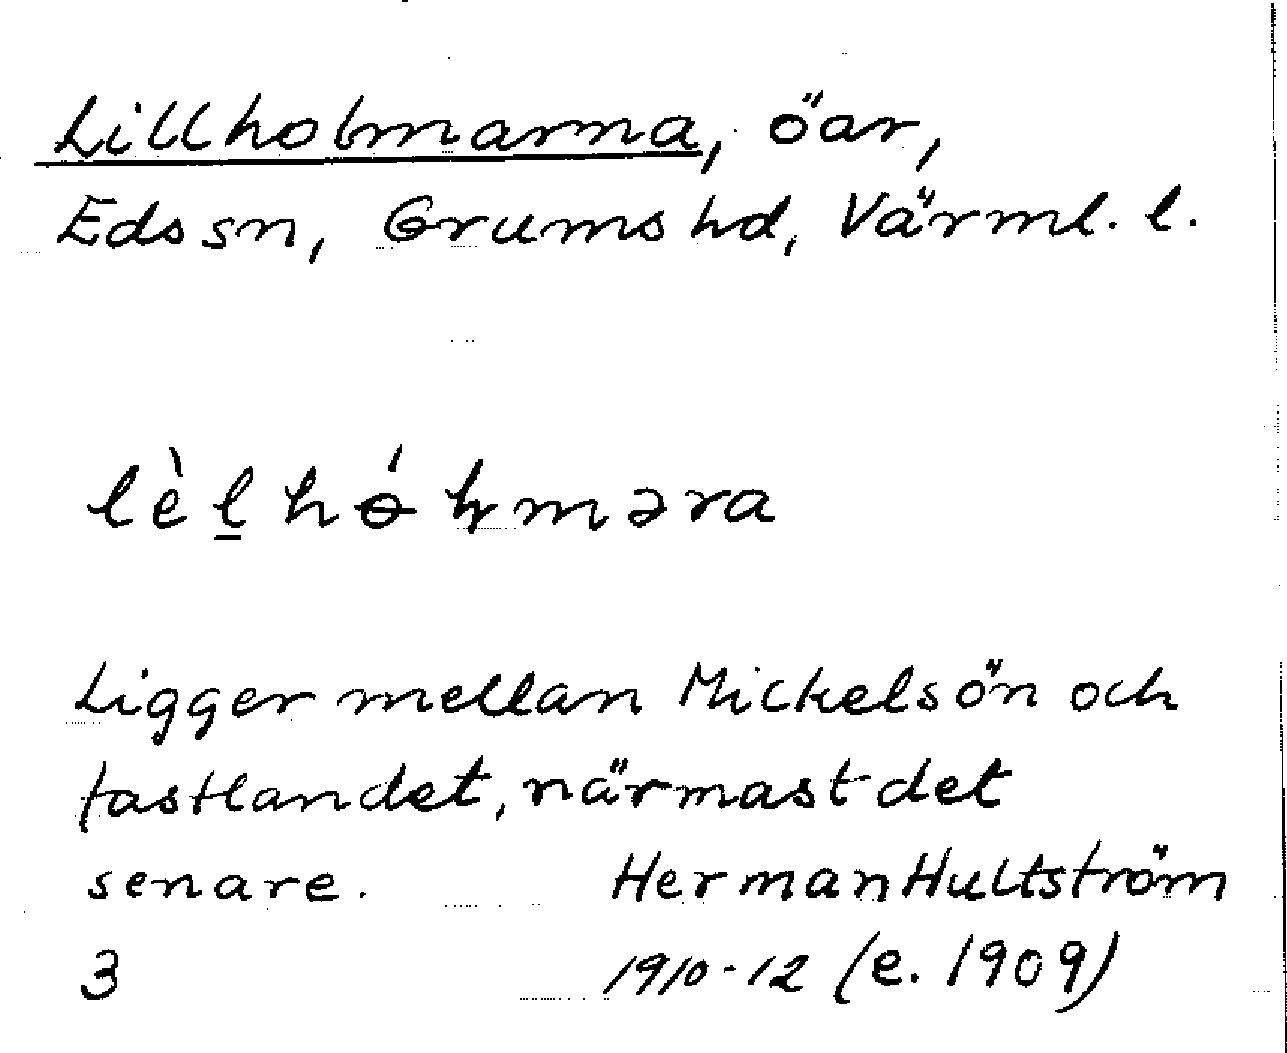 Lillholmarna, öar,
Eds sn, Grums hd, Värml. l.
lèl̲hɵ́ɫməra
Ligger mellan Mickelsön och
fastlandet, närmast det
senare. Herman Hultström
3 1910-12 (e. 1909)